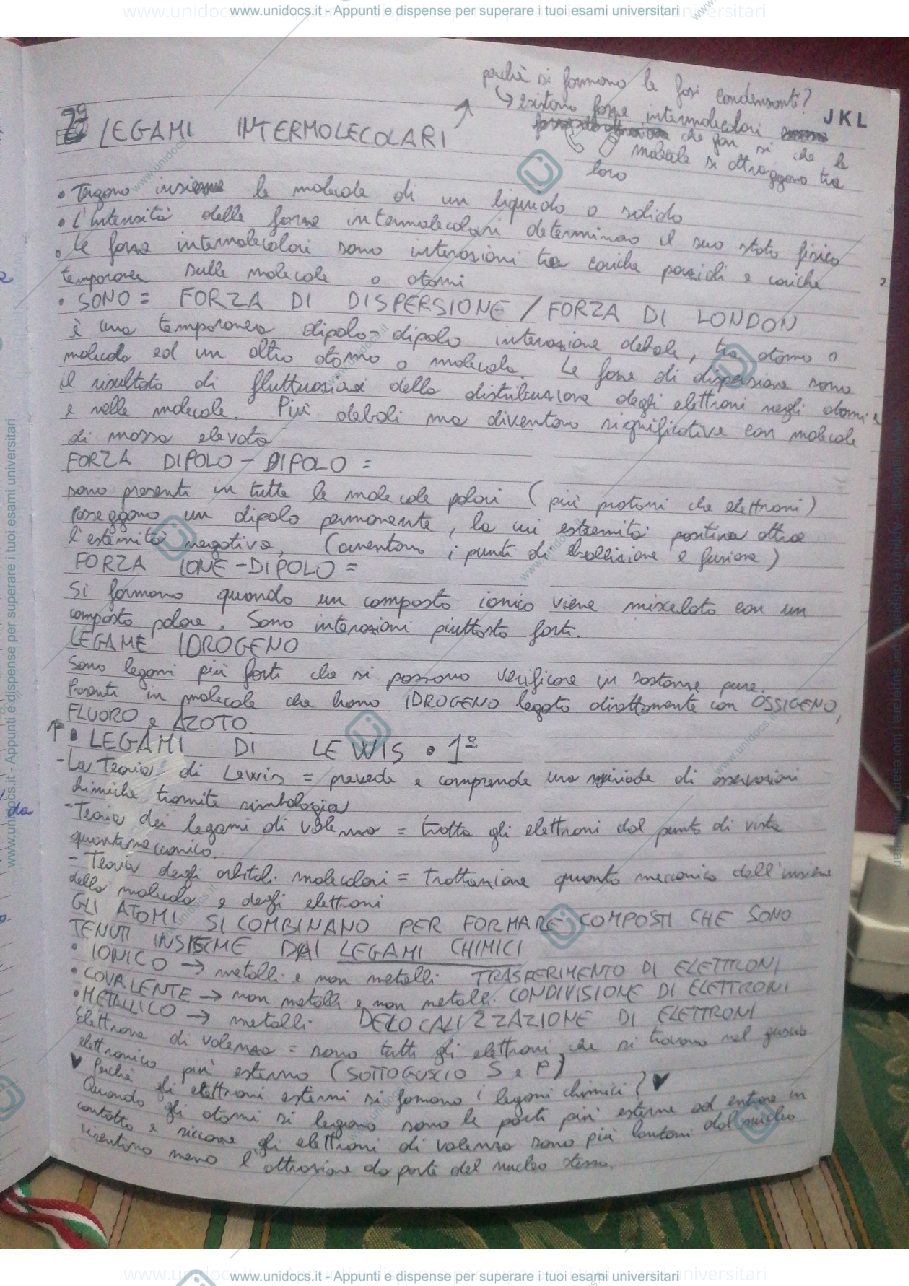 www.unidocs.it - Appunti e dispense per superare i tuoi esami universitari
perchè si formano le fasi condensanti?
esistono forze intermolecolari
che fan si che le
molecole si attraggano tra
loro
JKL
2º LEGAMI INTERMOLECOLARI
• Tengono insieme le molecole di un liquido o solido
• L'intensità delle forze intermolecolari determinano il suo stato fisico
• Le forze intermolecolari sono interazioni tra cariche parziali e cariche
temporanee sulle molecole o atomi
• SONO = FORZA DI DISPERSIONE / FORZA DI LONDON
è una temporanea dipolo-dipolo interazione debole, tra atomo o
molecola ed un altro atomo o molecola. Le forze di dispersione sono
il risultato di fluttuazioni della distribuzione degli elettroni negli atomi e
e nelle molecole. Più deboli ma diventano significative con molecole
di massa elevata
FORZA DIPOLO - DIPOLO =
sono presenti in tutte le molecole polari (più protoni che elettroni)
Posseggono un dipolo permanente, la cui estremità positiva attrae
l'estremità negativa. (aumentano i punti di ebollizione e fusione)
FORZA IONE - DIPOLO =
Si formano quando un composto ionico viene miscelato con un
composto polare. Sono interazioni piuttosto forti.
LEGAME IDROGENO
Sono legami più forti che si possono verificare in sostanze pure.
Presenti in molecole che hanno IDROGENO legato direttamente con OSSIGENO,
FLUORO e AZOTO
↑ • LEGAMI DI LEWIS • 1º
- La Teoria di Lewis = prevede e comprende una miriade di osservazioni
chimiche tramite simbologia
- Teoria dei legami di valenza = tratta gli elettroni dal punto di vista
quantomeccanico.
- Teoria degli orbitali molecolari = trattazione quanto meccanica dell'insieme
della molecola e degli elettroni
GLI ATOMI SI COMBINANO PER FORMARE COMPOSTI CHE SONO
TENUTI INSIEME DAI LEGAMI CHIMICI
• IONICO → metalli e non metalli TRASFERIMENTO DI ELETTRONI
• COVALENTE → non metalli e non metalli. CONDIVISIONE DI ELETTRONI
• METALLICO → metalli DELOCALIZZAZIONE DI ELETTRONI
Elettrone di valenza = sono tutti gli elettroni che si trovano nel guscio
elettronico più esterno (SOTTOGUSCIO S e P)
♥ Perchè gli elettroni esterni si formano i legami chimici? ♥
Quando gli atomi si legano sono le parti più esterne ad entrare in
contatto e siccome gli elettroni di valenza sono più lontani dal nucleo
risentono meno l'attrazione da parte del nucleo stesso.
www.unidocs.it - Appunti e dispense per superare i tuoi esami universitari